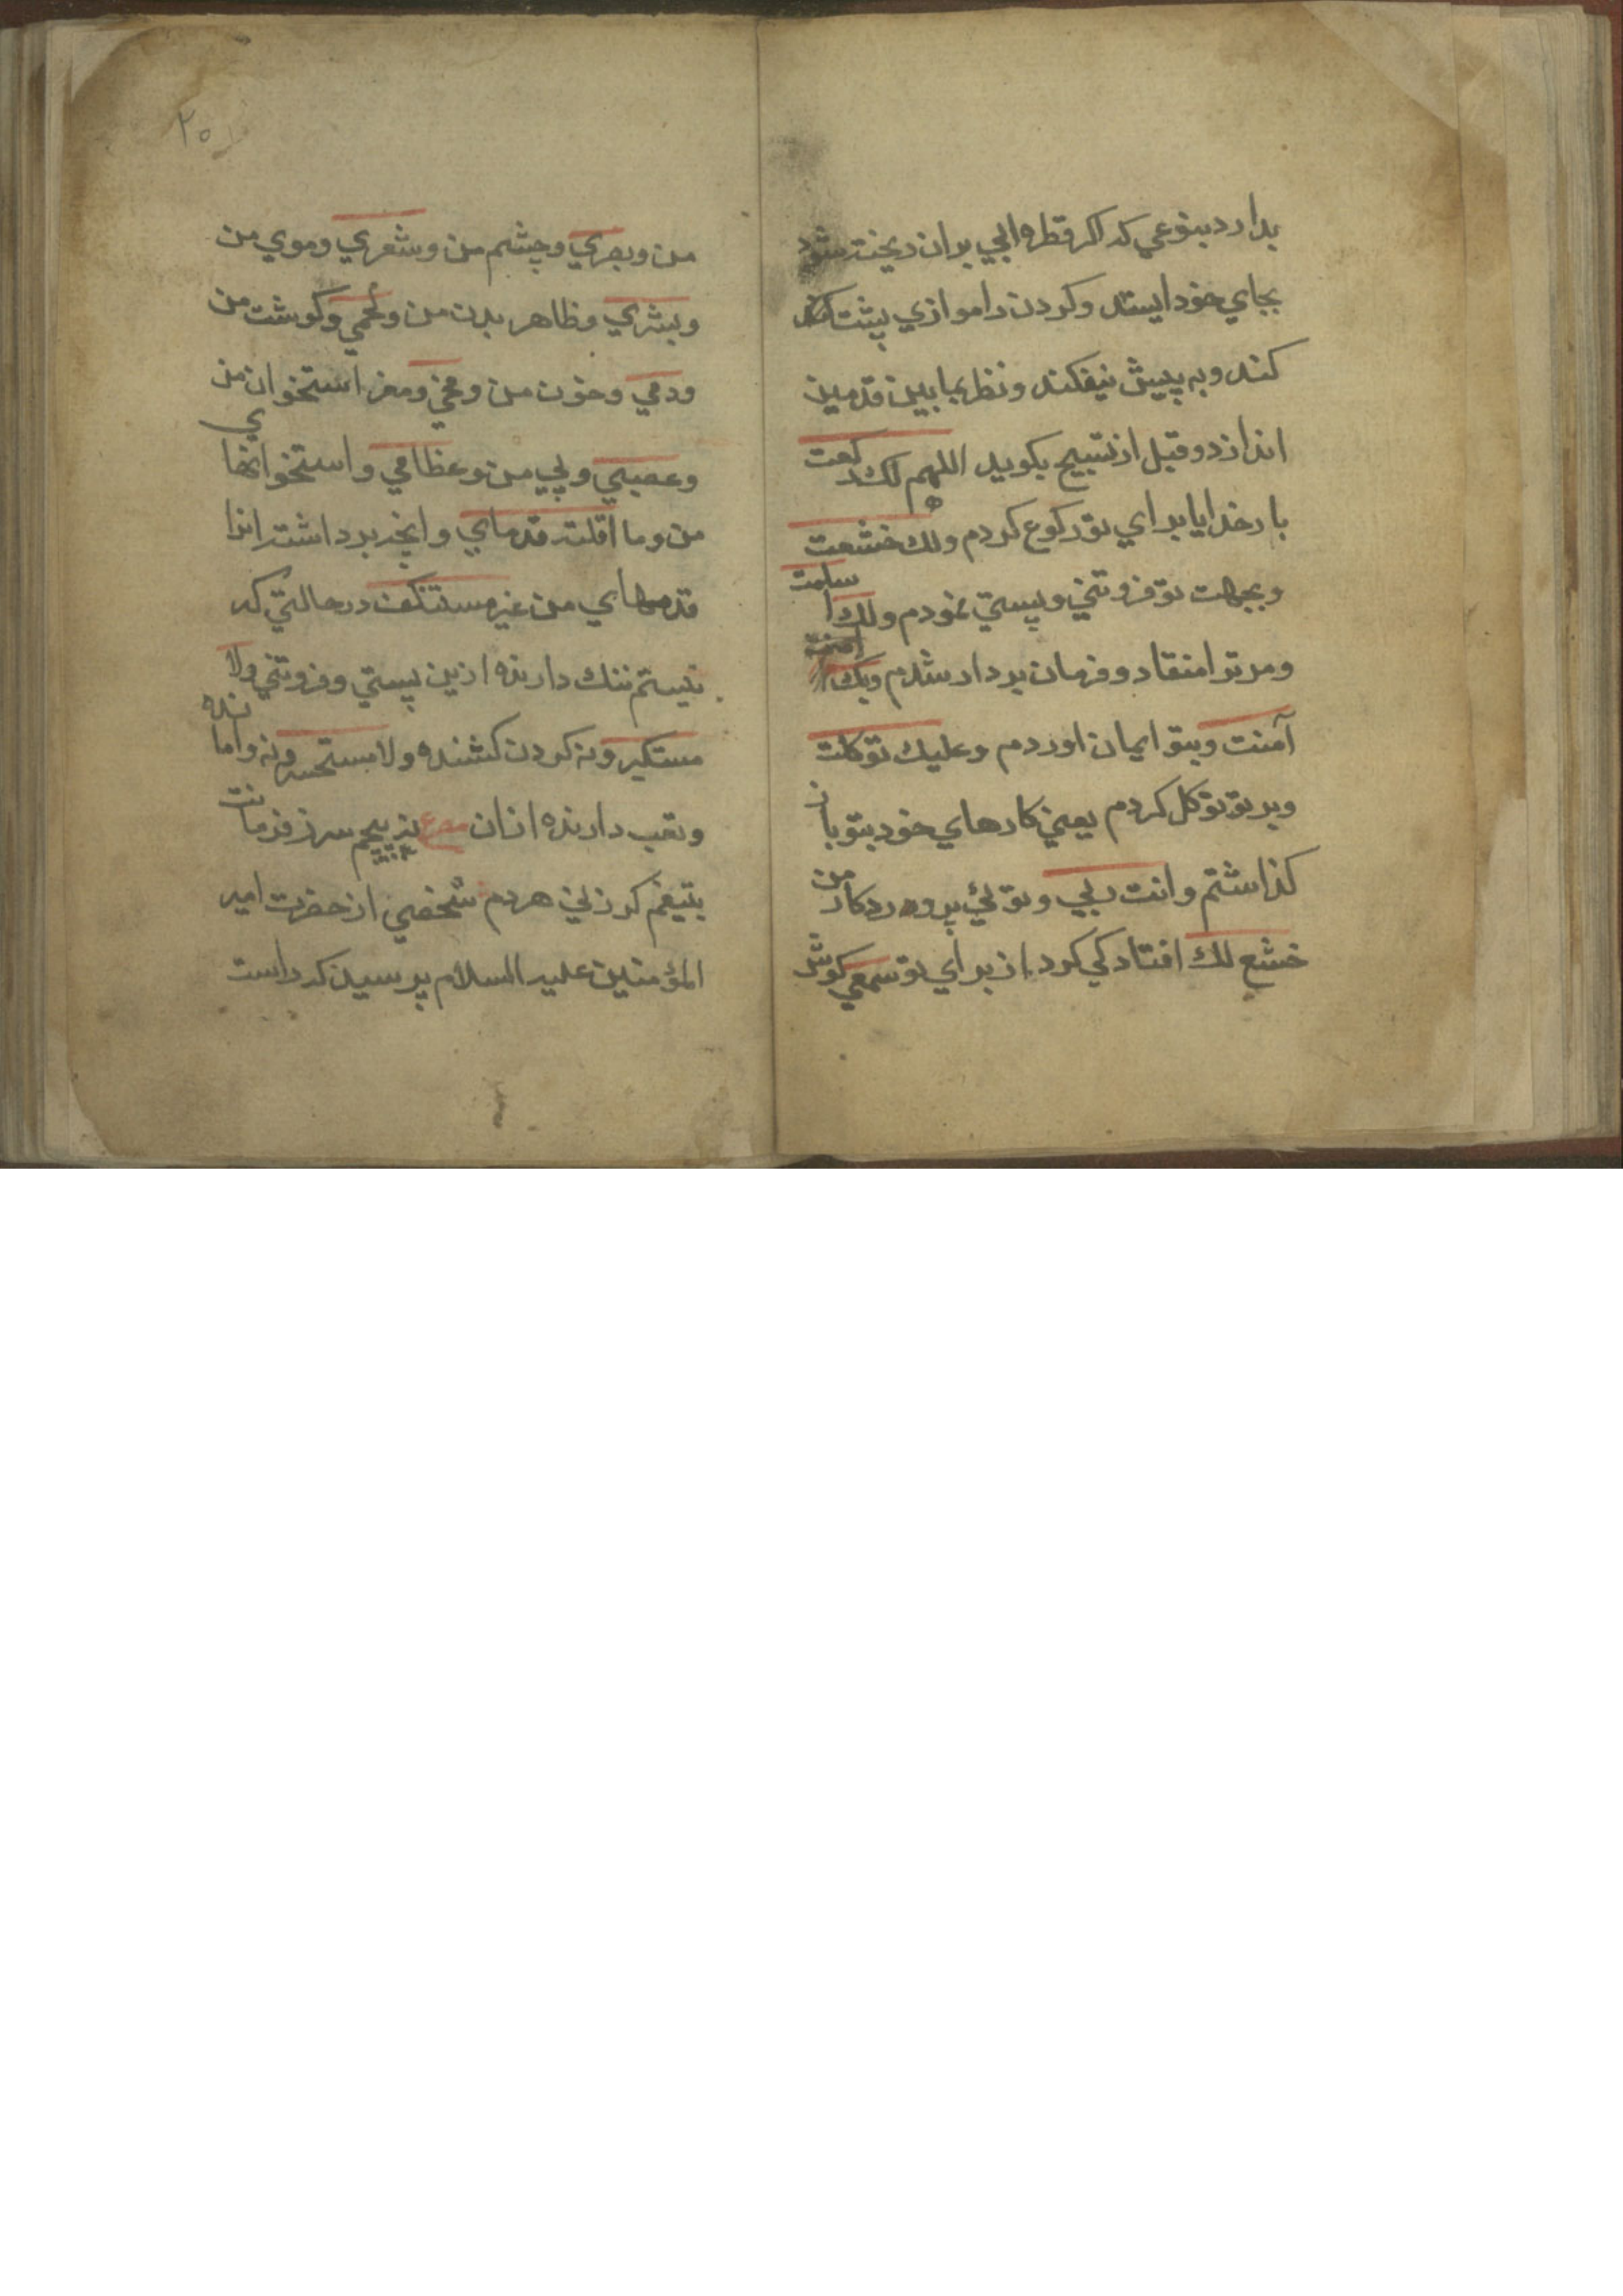 بدارد بنوعي كه اكر قطره ابي بران ريخته شود
بجاي خود ايستد وكردن را موازي پشت
كند و به پيش نيفكند و نظر بمابين قدمين
اندازد و قبل از تسبيح بكويد اللهم لك ركعت
بارخدايا براي تو ركوع كردم ولك خشعت
و بجهت تو فروتني و پستي نمودم ولك اسلمت
و مر ترا منقاد و فرمان بردار شدم وبك
آمنت وبتو ايمان اوردم وعليك توكلت
وبر تو توكل كردم يعني كارهاي خود بتو باز
كذاشتم وانت ربي وتوئي پروردكار من
خشع لك افتادكي كرد از براي تو سمعي كوش
٢٥
من وبصري وچشم من وشعري وموي من
وبشري وظاهر بدن من ولحمي وكوشت من
ودمي وخون من ومخي ومغز استخوان من
وعصبي وپي من وعظامي واستخوانهاي
من وما اقلته قدماي وانچه برداشته انرا
قدمهاي من غير مستنكف درحالتي كه
نيستم ننك دارنده ازين پستي وفروتني ولا
مستكبر ونه كردن كشنده ولا مستحسر ونه وامانده
وتعب دارنده ازان مصرع نه پيچم سر ز فرمانت
بتيغم كر زني هردم شخصي از حضرت امير
المؤمنين عليه السلام پرسيد كه راست